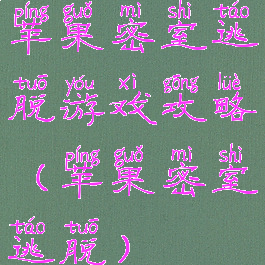 píng guǒ mì shì táo
苹果密室逃
tuō yóu xì gōng lüè
脱游戏攻略
píng guǒ mì shì
（苹果密室
táo tuō
逃脱）